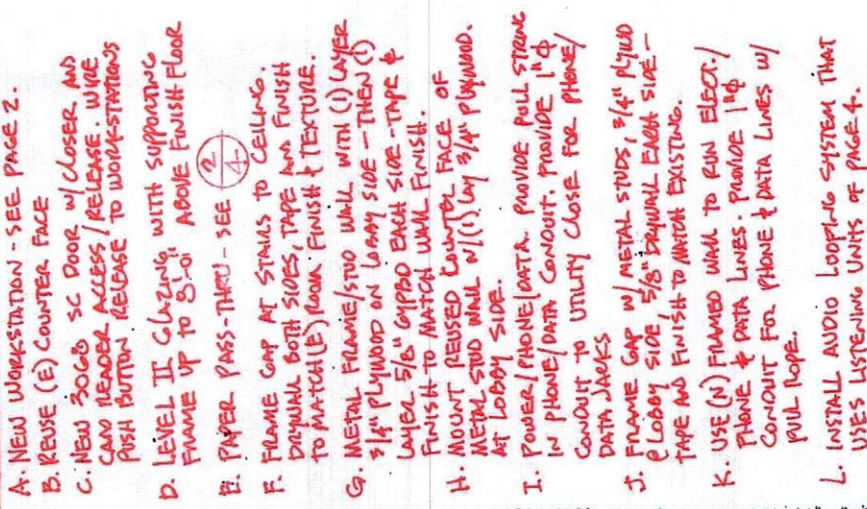 A. NEW WORKSTATION - SEE PAGE 2
B. REUSE (E) COUNTER FACE
C. NEW 3068 SC DOOR W/ CLOSER AND
CARD READER ACCESS/RELEASE. WIRE
PUSH BUTTON RELEASE TO WORKSTATIONS
D. LEVEL II GLAZING WITH SUPPORTING
FRAME UP TO 8'-0" ABOVE FINISH FLOOR
E. PAPER PASS-THRU - SEE 2/4
F. FRAME GAP AT STAIRS TO CEILING.
DRYWALL BOTH SIDES, TAPE AND FINISH
TO MATCH (E) ROOM FINISH & TEXTURE.
G. METAL FRAME/STUD WALL WITH (1) LAYER
3/4" PLYWOOD ON LOBBY SIDE - THEN (1)
LAYER 5/8" GYPBD EACH SIDE - TAPE &
FINISH TO MATCH WALL FINISH.
H. MOUNT REUSED COUNTER FACE OF
METAL STUD WALL W/(1) LAY 3/4" PLYWOOD.
AT LOBBY SIDE.
I. POWER/PHONE/DATA. PROVIDE PULL STRING
IN PHONE/DATA CONDUIT. PROVIDE 1"φ
CONDUIT TO UTILITY CLOSE FOR PHONE/
DATA JACKS
J. FRAME GAP W/ METAL STUDS, 3/4" PLYWD
@ LOBBY SIDE, 5/8" DRYWALL EACH SIDE -
TAPE AND FINISH TO MATCH EXISTING.
K. USE (N) FRAMED WALL TO RUN ELECT./
PHONE & DATA LINES. PROVIDE 1"φ
CONDUIT FOR PHONE & DATA LINES W/
PULL ROPE.
L. INSTALL AUDIO LOOPING SYSTEM THAT
USES LISTENING UNITS OF PAGE 4.